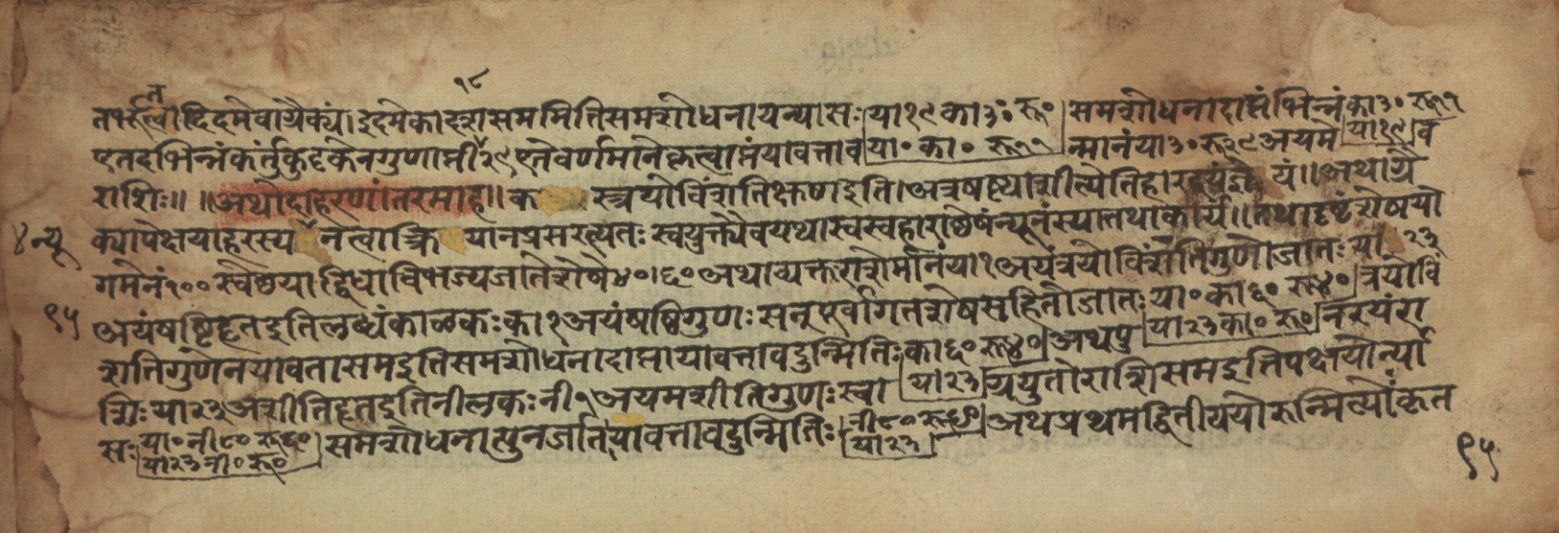 १८
तार्हत्वाद्दिदमेवाग्रैक्यं। इदमेकास्त्रासममितिसमशोधनायन्यासः या१९ का३० रू० समशोधनादाप्तं भिन्नं का३० रू१
एतदभिन्नंकर्तुंकुट्टकेनगुणाप्ती २९ एतेवर्णमानेकृत्वाप्तंयावत्ताव या० का० रू११ न्मानंया३० रू२९ अयमे या१९ व
राशिः॥ ॥अथोदाहरणांतरमाह॥ क स्त्रयोविंशतिक्षुण इति। अत्रषष्ट्याशीत्येतिहारद्वयं यं॥ अथाग्रै
४ न्यू क्यापेक्षयाहरस्य नत्वाक्रि यानप्रसरत्यतः स्वयुक्त्यैवयथास्वस्वहाराच्छेषंन्यूनंस्यात्तथाकार्यं॥ तथादृष्टंशेषयो
गमेनं१०० स्वेच्छयाद्विधाविभज्यजातेशेषे४०।६० अथाव्यक्तराशेर्मानंया१ अयंत्रयोविंशतिगुणोजातः या २३
९५ अयंषष्टिहृतइतिलब्धंकालकः का१ अयंषष्टिगुणः सन्पूर्वागतशेषसहितोजातः या० का६० रू४० त्रयोविं
शतिगुणेनयावतासमइतिसमशोधनादाप्तायावत्तावदुन्मितिः का६० रू४० अथपु या२३ का० रू० नरयंरा
शिः या२३ अशीतिहृतइतिनीलकः नी१ अयमशीतिगुणः स्वा या२३ ग्रयुतोराशिसमइतिपक्षयोर्न्या
सः या० नी८० रू६० समशोधनात्पुनर्जातायावत्तावदुन्मितिः नी८० रू६० अथप्रथमद्वितीययोरुन्मित्योःकृत
या२३ नी० रू० या२३
९५